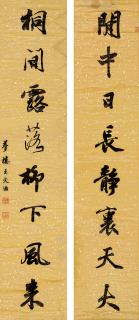 閒中日長靜裏天大
桐間露落柳下風來
夢樓王文治